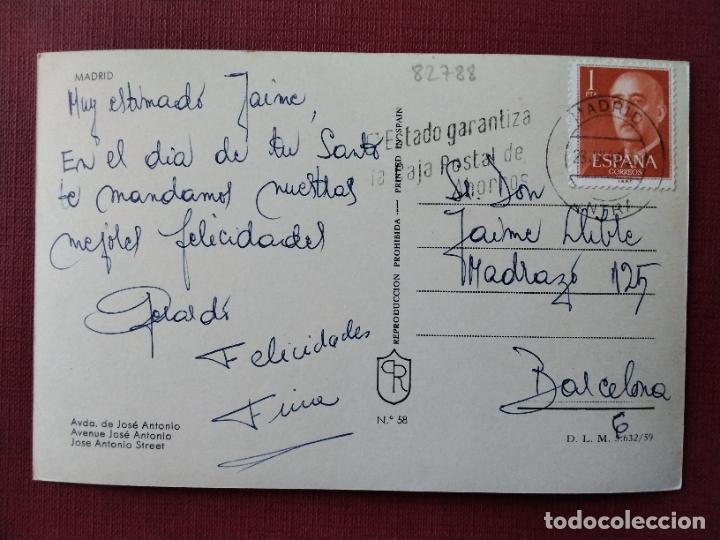 82788
MADRID
Muy estimado Jaime,
En el dia de tu Santo
te mandamos nuestras
mejores felicidades
Gerardo
Felicidades
Fina
Avda. de José Antonio
Avenue José Antonio
Jose Antonio Street
REPRODUCCION PROHIBIDA — PRINTED IN SPAIN
N.° 58
El Estado garantiza
la Caja Postal de
Ahorros
1
PTA
ESPAÑA
CORREOS
MADRID
23
Sr. Don
Jaime Llible
Madrazo 125
Barcelona
6
D. L. M. 5.632/59
todocoleccion.net